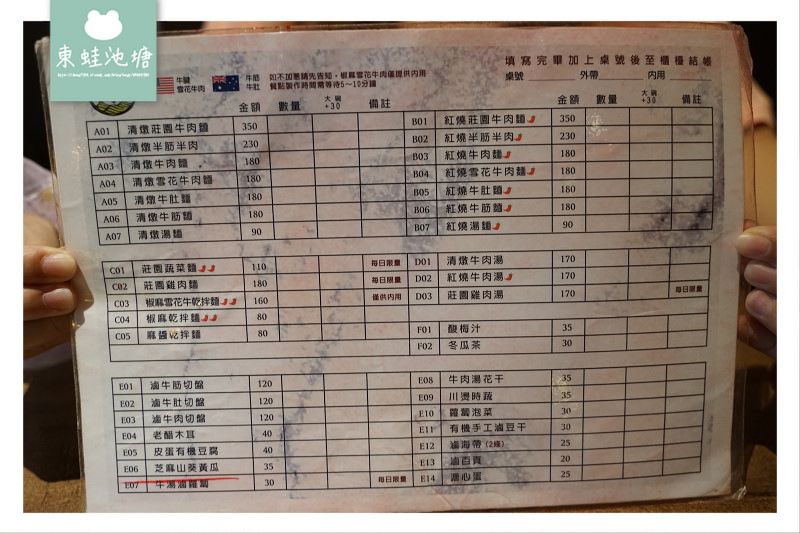 東蛙池塘
牛腱
雪花牛肉
牛筋
牛肚
如不加蔥請先告知，椒麻雪花牛肉僅提供內用
餐點製作時間需等待5～10分鐘
填寫完畢加上桌號後至櫃檯結帳
桌號 外帶 內用
金額 數量 大碗+30 備註
A01 清燉莊園牛肉麵 350
A02 清燉半筋半肉 230
A03 清燉牛肉麵 180
A04 清燉雪花牛肉麵 180
A05 清燉牛肚麵 180
A06 清燉牛筋麵 180
A07 清燉湯麵 90
金額 數量 大碗+30 備註
B01 紅燒莊園牛肉麵 350
B02 紅燒半筋半肉 230
B03 紅燒牛肉麵 180
B04 紅燒雪花牛肉麵 180
B05 紅燒牛肚麵 180
B06 紅燒牛筋麵 180
B07 紅燒湯麵 90
C01 莊園蔬菜麵 110 每日限量
C02 莊園雞肉麵 180 每日限量
C03 椒麻雪花牛乾拌麵 160 僅供內用
C04 椒麻乾拌麵 80
C05 麻醬乾拌麵 80
D01 清燉牛肉湯 170
D02 紅燒牛肉湯 170
D03 莊園雞肉湯 170 每日限量
F01 酸梅汁 35
F02 冬瓜茶 30
E01 滷牛筋切盤 120
E02 滷牛肚切盤 120
E03 滷牛肉切盤 120
E04 老醋木耳 40
E05 皮蛋有機豆腐 40
E06 芝麻山葵黃瓜 35
E07 牛湯滷蘿蔔 30 每日限量
E08 牛肉湯花干 35
E09 川燙時蔬 35
E10 蘿蔔泡菜 30
E11 有機手工滷豆干 30
E12 滷海帶(2條) 25
E13 滷百頁 20
E14 溏心蛋 25